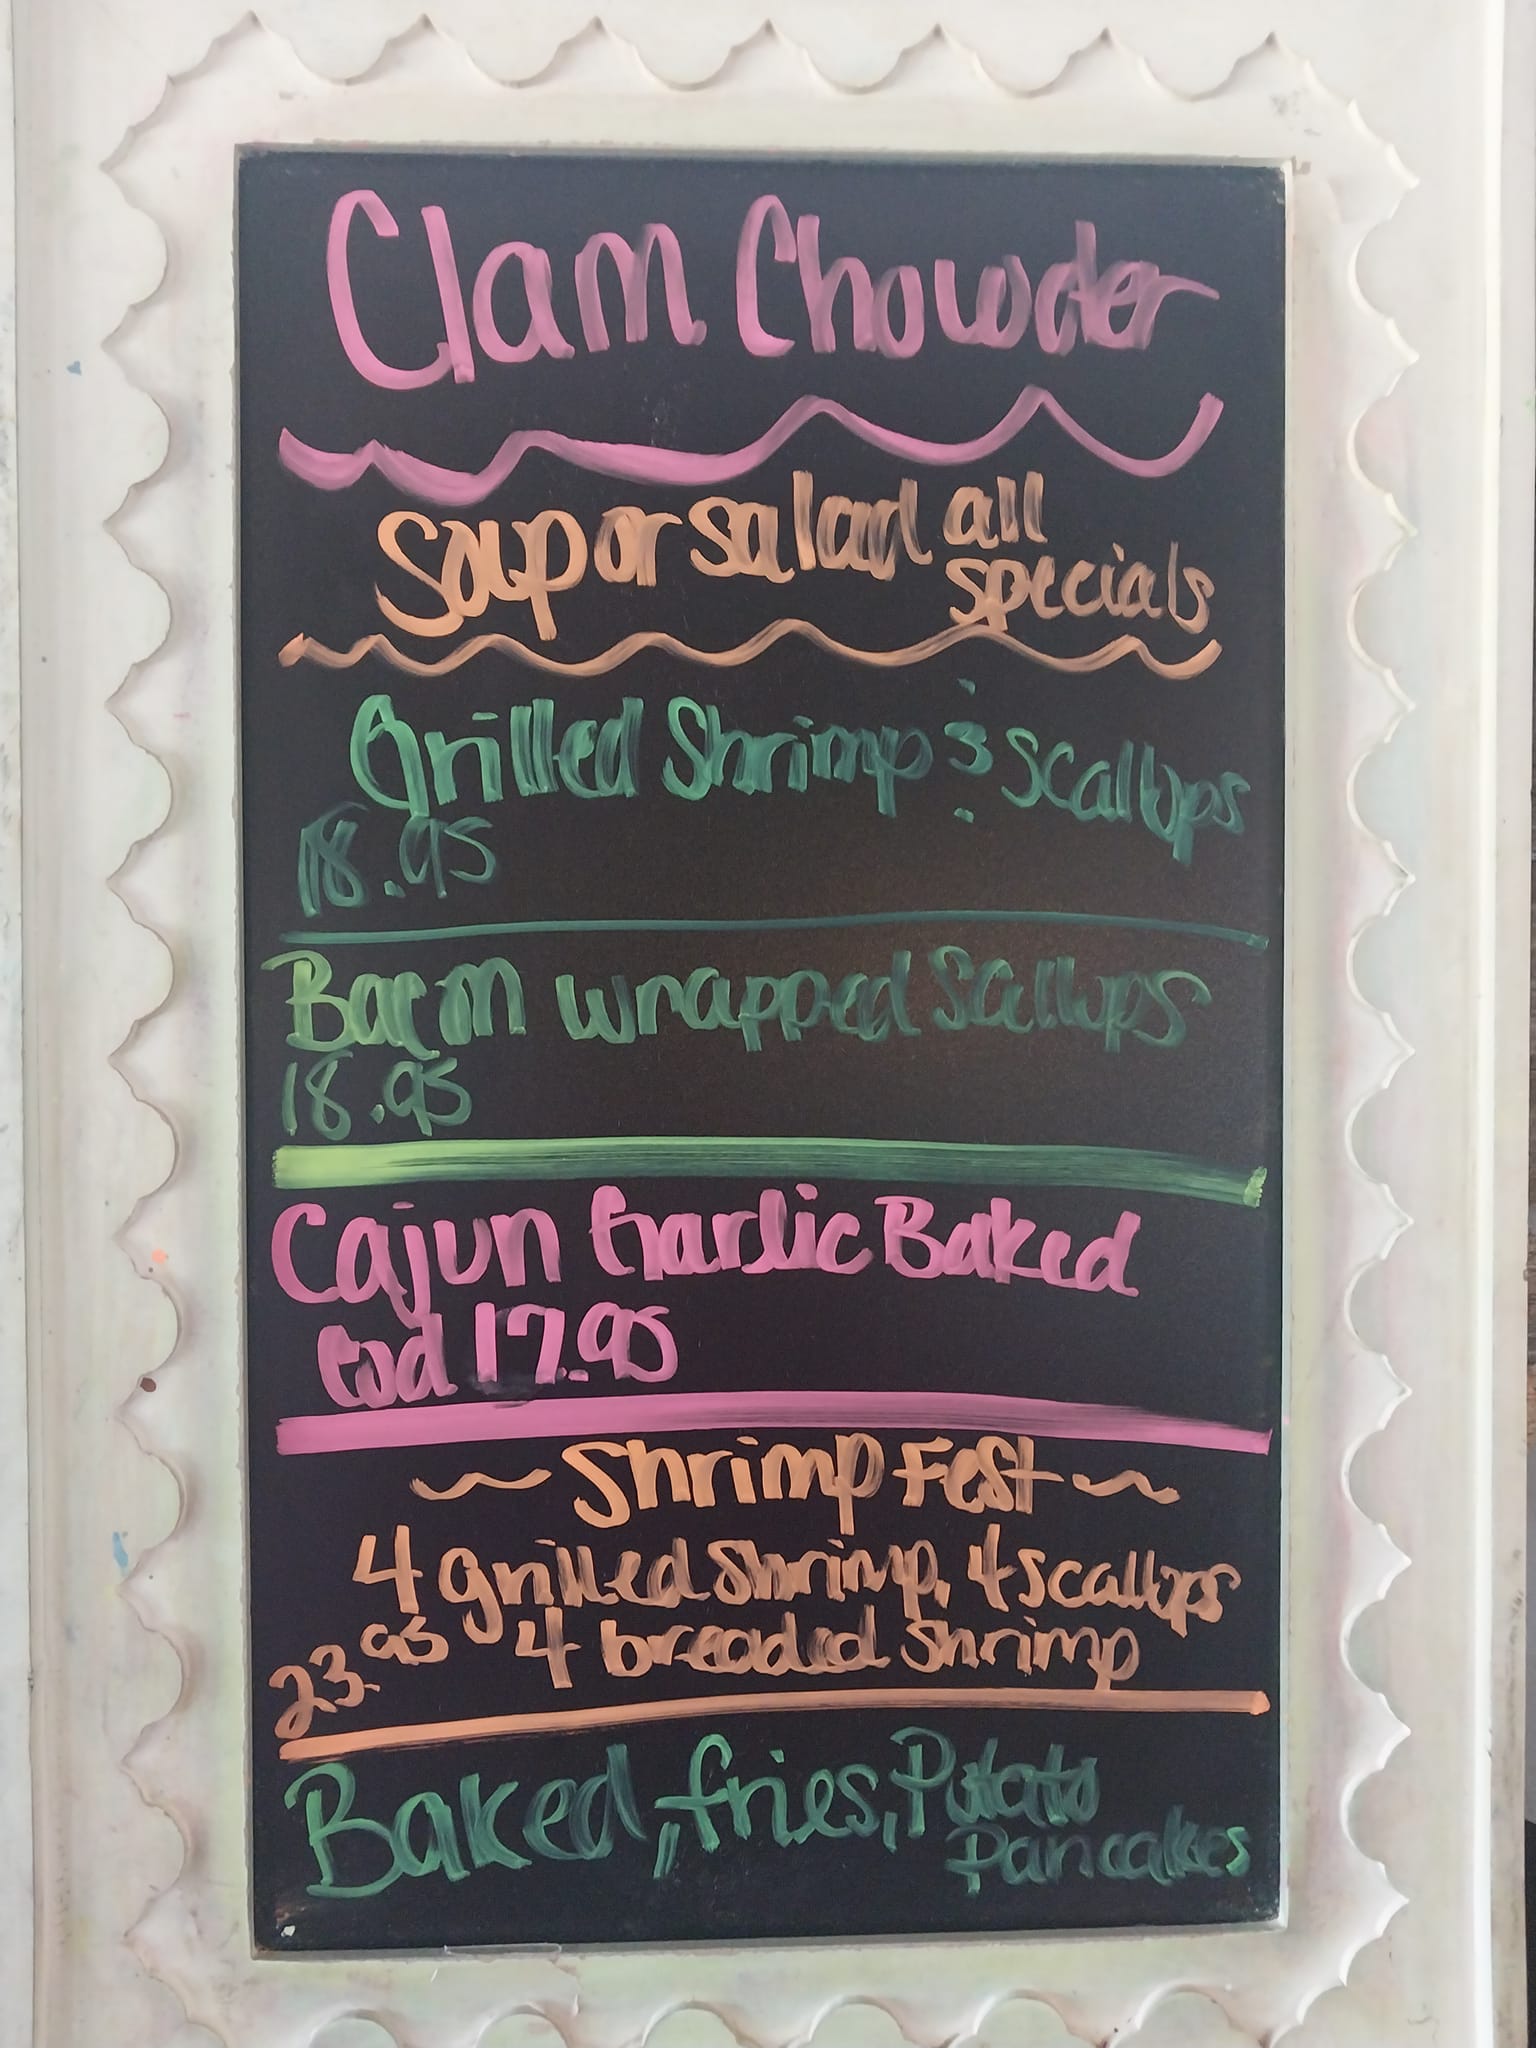 Clam Chowder
Soup or salad all
specials
Grilled Shrimp & Scallops
18.95
Bacon wrapped Scallops
18.95
Cajun Garlic Baked
Cod 17.95
~ Shrimp Fest ~
4 grilled Shrimp, 4 scallops
23.95 4 breaded shrimp
Baked, fries, Potato
Pancakes